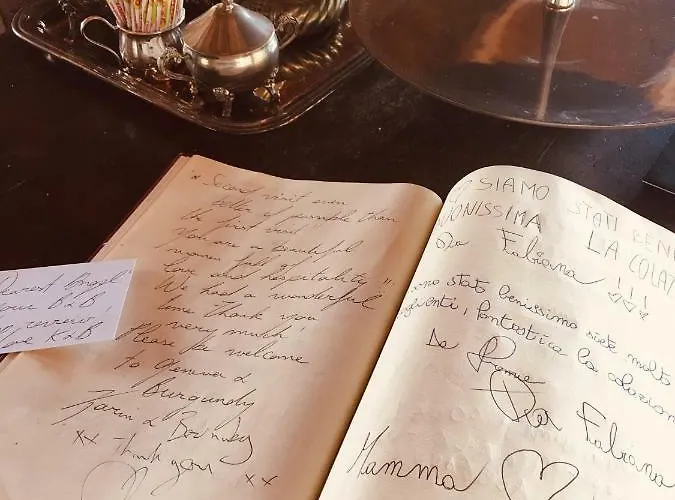 Dearest Angel
your B&B
review,
Love K&B
* Second visit even
better if possible than
the first visit!
You are a beautiful
woman full of
love and hospitality!!
We had a wonderful
time thank you
very much!
Please be welcome
to Geneva &
Burgundy
Karin &
xx Thank you xx
SIAMO STATI BENI
LA COLAZ
Da Fabiana !!!
sono stato benissimo siete molto
fantastica la colazion
Da
Da Fabiana
Mamma